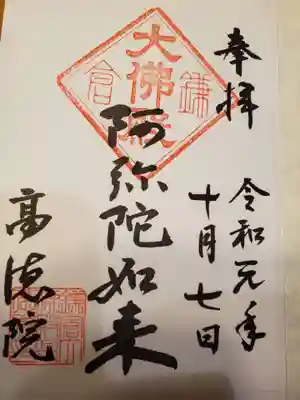 奉拝
令和元年
十月七日
大佛殿
鎌倉
阿弥陀如来
高徳院